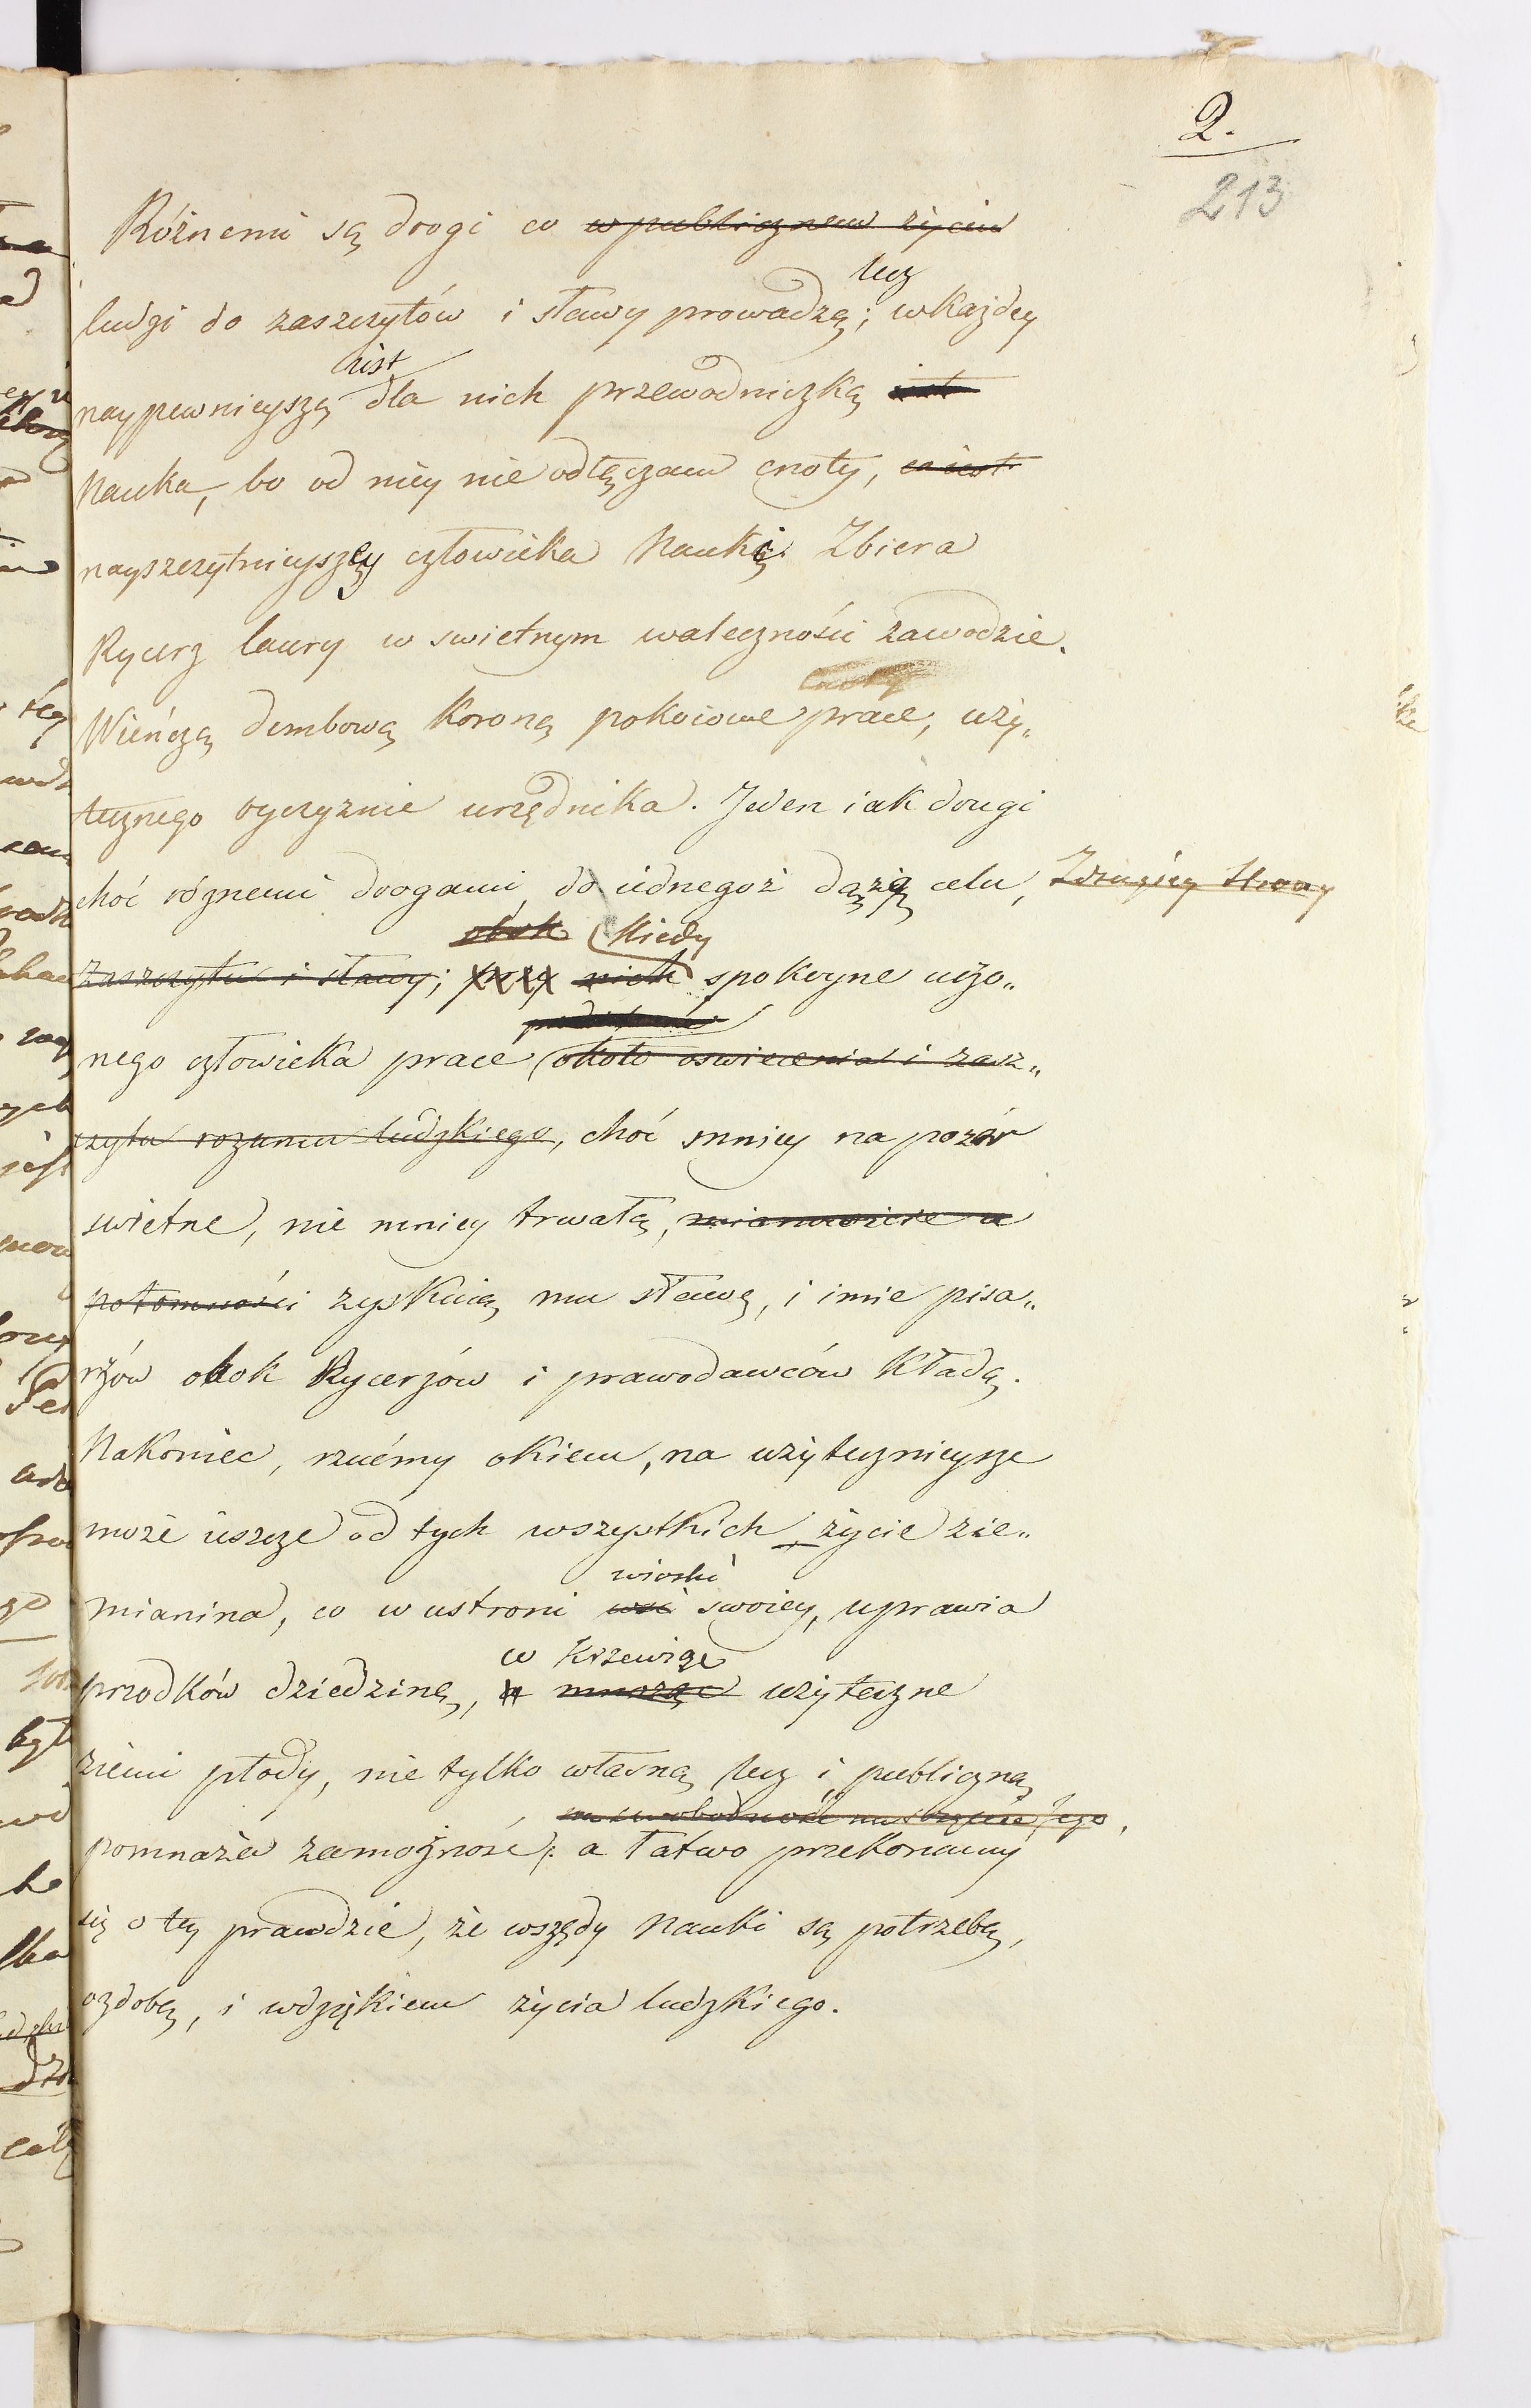 2.
213
Różnemi są drogi co w publicznem życiu
lecz
ludzi do zaszczytów i sławy prowadzą; w każdey
iest
naypewnieyszą dla nich przewodniczką iest
Nauka, bo od niey nie odłączam cnoty, co iest
nayszczytnieyszey człowieka Nauki. Zbiera
Rycerz laury w swietnym waleczności zawodzie.
Wieńczą dembową Koroną pokoiowe prace, uży„
tecznego oyczyznie urzędnika. Jeden iak drugi
choć róznemi drogami, do iednegoż dążą celu, Zdrugiey strony
obok Kiedy
zaszczytu i sławy; przy nich spokoyne uczo„
nego człowieka prace około oswiecenia i zasz„
czytu rozumu ludzkiego, choć mniey na pozór
swietne, nie mniey trwałą, mianowicie u
potomności zyskuią mu sławę, i imie pisa„
rzów obok Rycerzów i prawodawców Kładą.
Nakoniec, rzućmy okiem, na użytecznieysze
może ieszcze od tych wszystkich życie zie„
wioski
mianina, co w ustroni wsi swoiey, uprawia
w Krzewiąc
przodków dziedzinę, mnożąc użyteczne
ziemi płody, nie tylko własną lecz i publiczną
pomnaża zamożność: a łatwo przekonamy
się o tey prawdzie, że wszędy Nauki są potrzebą,
ozdobą, i wdziękiem życia ludzkiego.